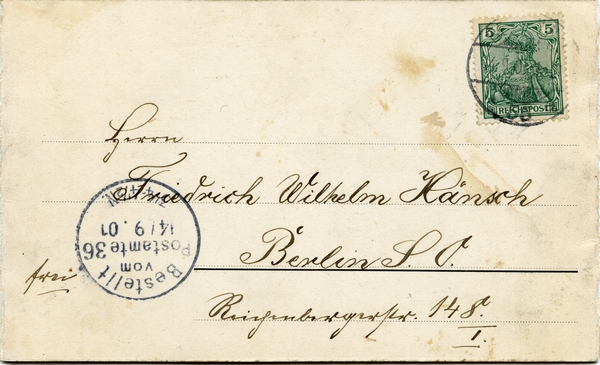 5 5
REICHSPOST
Herrn
Friedrich Wilhelm Hänsch
Berlin S. O.
frei
Reichenbergerstr. 148.
I.
Bestellt
vom
Postamte 36
14/9.01